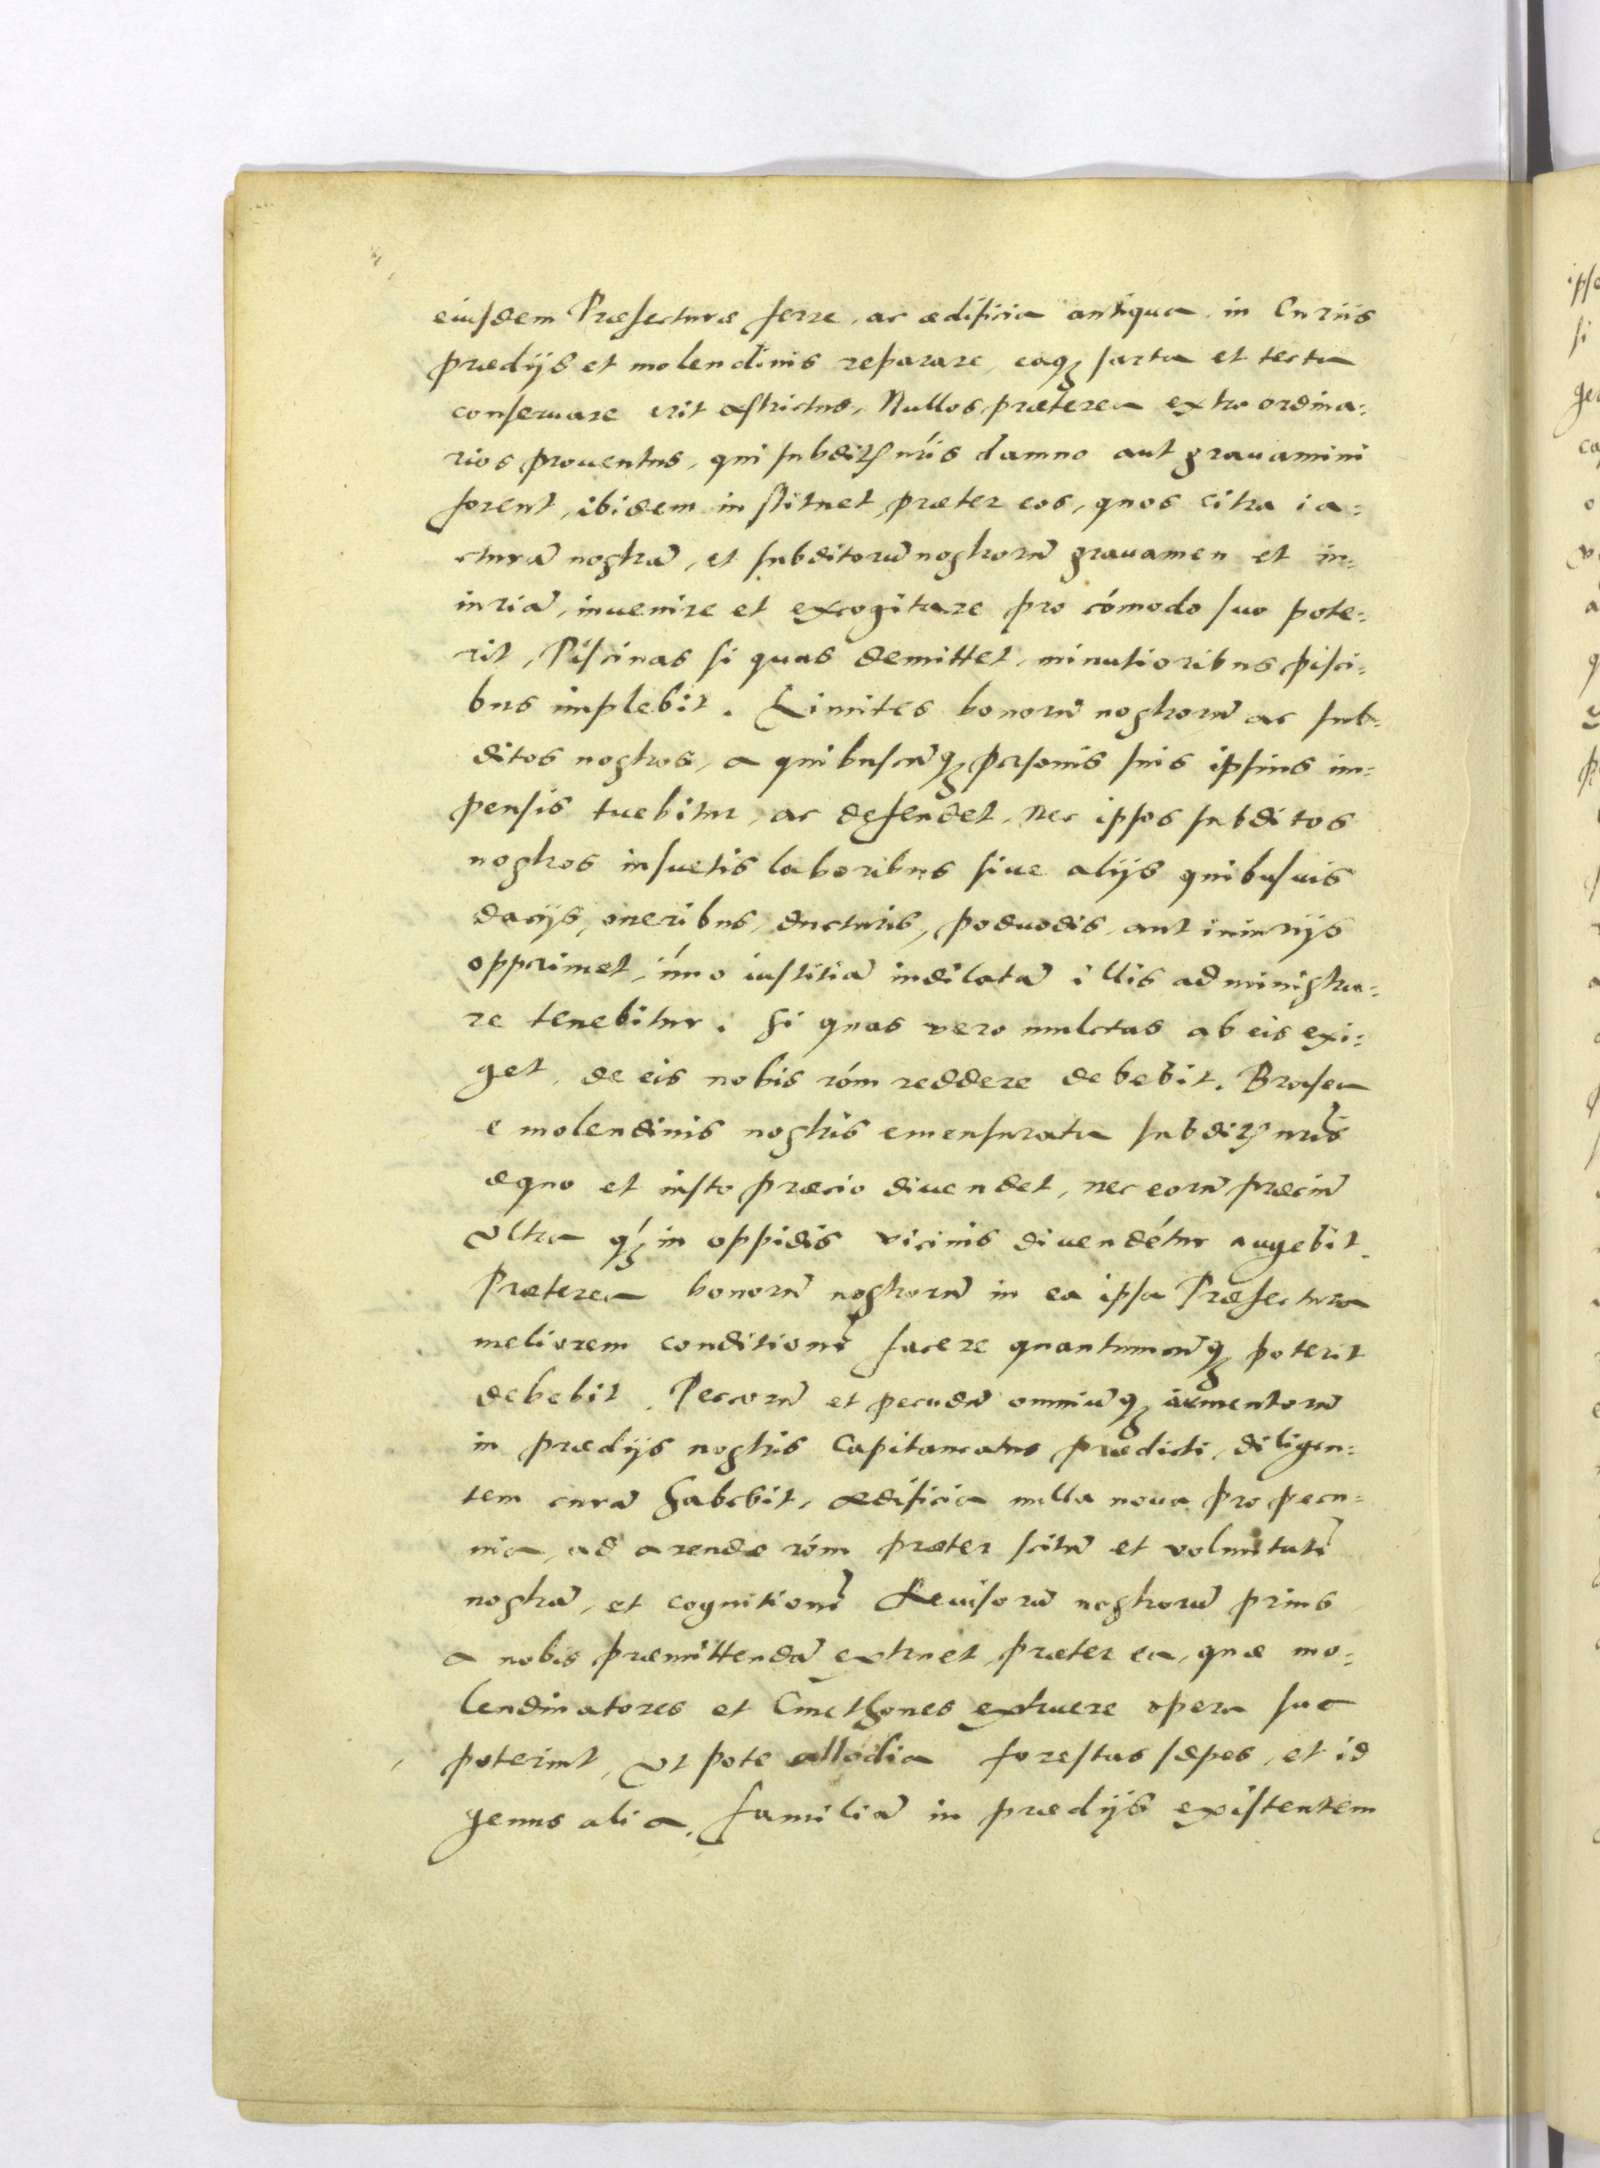 eiusdem Præfecturæ ferre, ac ædificia antiqua in Curiis
prædijs et molendinis reparare, eaq3 sarta et tecta
conseruare erit astrictus, Nullos præterea extraordina:
rios prouentus, qui subdit͛ nr̃is damno aut grauamini
forent, ibidem instituet, præter eos, quos citra ia:
cturā nostrā, et subditorū nostrorū grauamen et in:
iuriā, inuenire et excogitare pro cōmodo suo pote:
rit, Piscinas si quas demittet, minutioribus pisci:
bus implebit. Limites bonorū nostrorū ac sub:
ditos nostros, a quibuscūq3 personis suis ipsius im:
pensis tuebitur, ac defendet, Nec ipsos subditos
nostros insuetis laboribus siue alijs quibusuis
dacijs, oneribus, ducturis, poduodis, aut iniurijs
opprimet, im̄o iustitiā indilatā illis administra:
re tenebitur. Si quas vero mulctas ab eis exi:
get, de eis nobis rōm reddere debebit. Brasea
e molendinis nostris emensurata subdit͛ nr̃is
æquo et iusto præcio diuendet, nec eorū præciū
Vltra q̄3 in oppidis vicinis diuendētur augebit.
Præterea bonorū nostrorū in ea ipsa Præfectura
meliorem conditionē facere quantumcūq3 poterit
debebit. Pecorū et pecudū omniūq3 armentorū
in prædijs nostris Capitaneatus prædicti, diligen:
tem curā habebit, ædificia nulla noua pro pecu:
nia, ad arendæ rōm præter scitū et voluntatē
nostrā, et cognitionē Reuisorū nostrorū prius
a nobis præmittendā extruet, præter ea, quæ mo:
lendinatores et Cmethones extruere opera sua
poterint, Vt pote allodia forestas sæpes, et id
genus alia, familiā in prædijs existentem